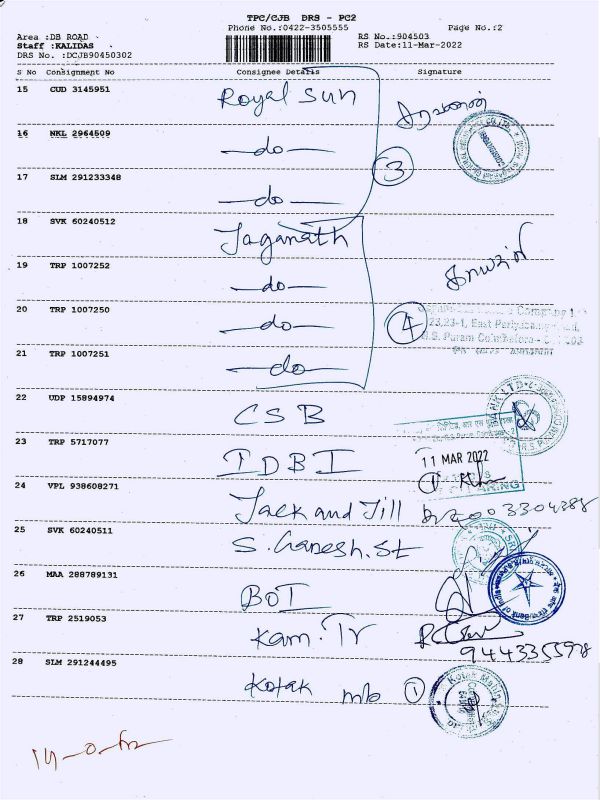 TPC/CJB DRS - PC2
Phone No.:0422-3505555 Page No.:2
Area :DB ROAD RS No.:904503
Staff :KALIDAS RS Date:11-Mar-2022
DRS No. :DCJB90450302
S No Consignment No Consignee Details Signature
15 CUD 3145951 Royal Sun சரவணன்
16 NKL 2964509 —do—
3
17 SLM 291233348 —do—
18 SVK 60240512 Jaganath
19 TRP 1007252 —do—
20 TRP 1007250 —do— 4
23,23-1, East Periyasamy Road,
R.S. Puram Coimbatore -
21 TRP 1007251 —do—
22 UDP 15894974 CSB
23 TRP 5717077 IDBI 11 MAR 2022
CLEARING
24 VPL 938608271 Jack and Jill
25 SVK 60240511 S. Ganesh. St
26 MAA 288789131 BOI
27 TRP 2519053 Kam. Tr
9443355598
28 SLM 291244495 Kotak mb 1 Kotak Mahindra